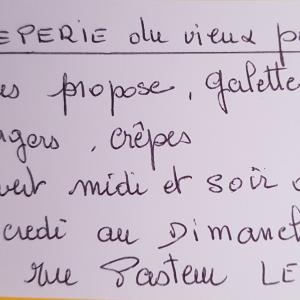 EPERIE du vieux p
es propose, galette
agers, crêpes
vert midi et soir
credi au Dimanch
rue Pasteur LE